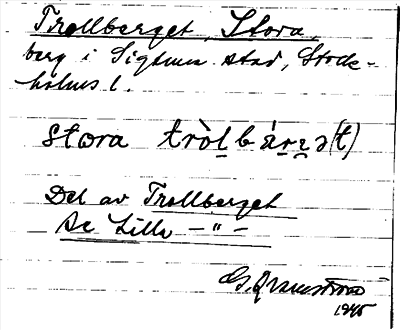 Trollberget, Stora,
berg i Sigtuna stad, Stock-
holms l.
stora tròḷbáṛṛə(t)
Del av Trollberget
Se Lilla —"—
G. Qvarnström
1945